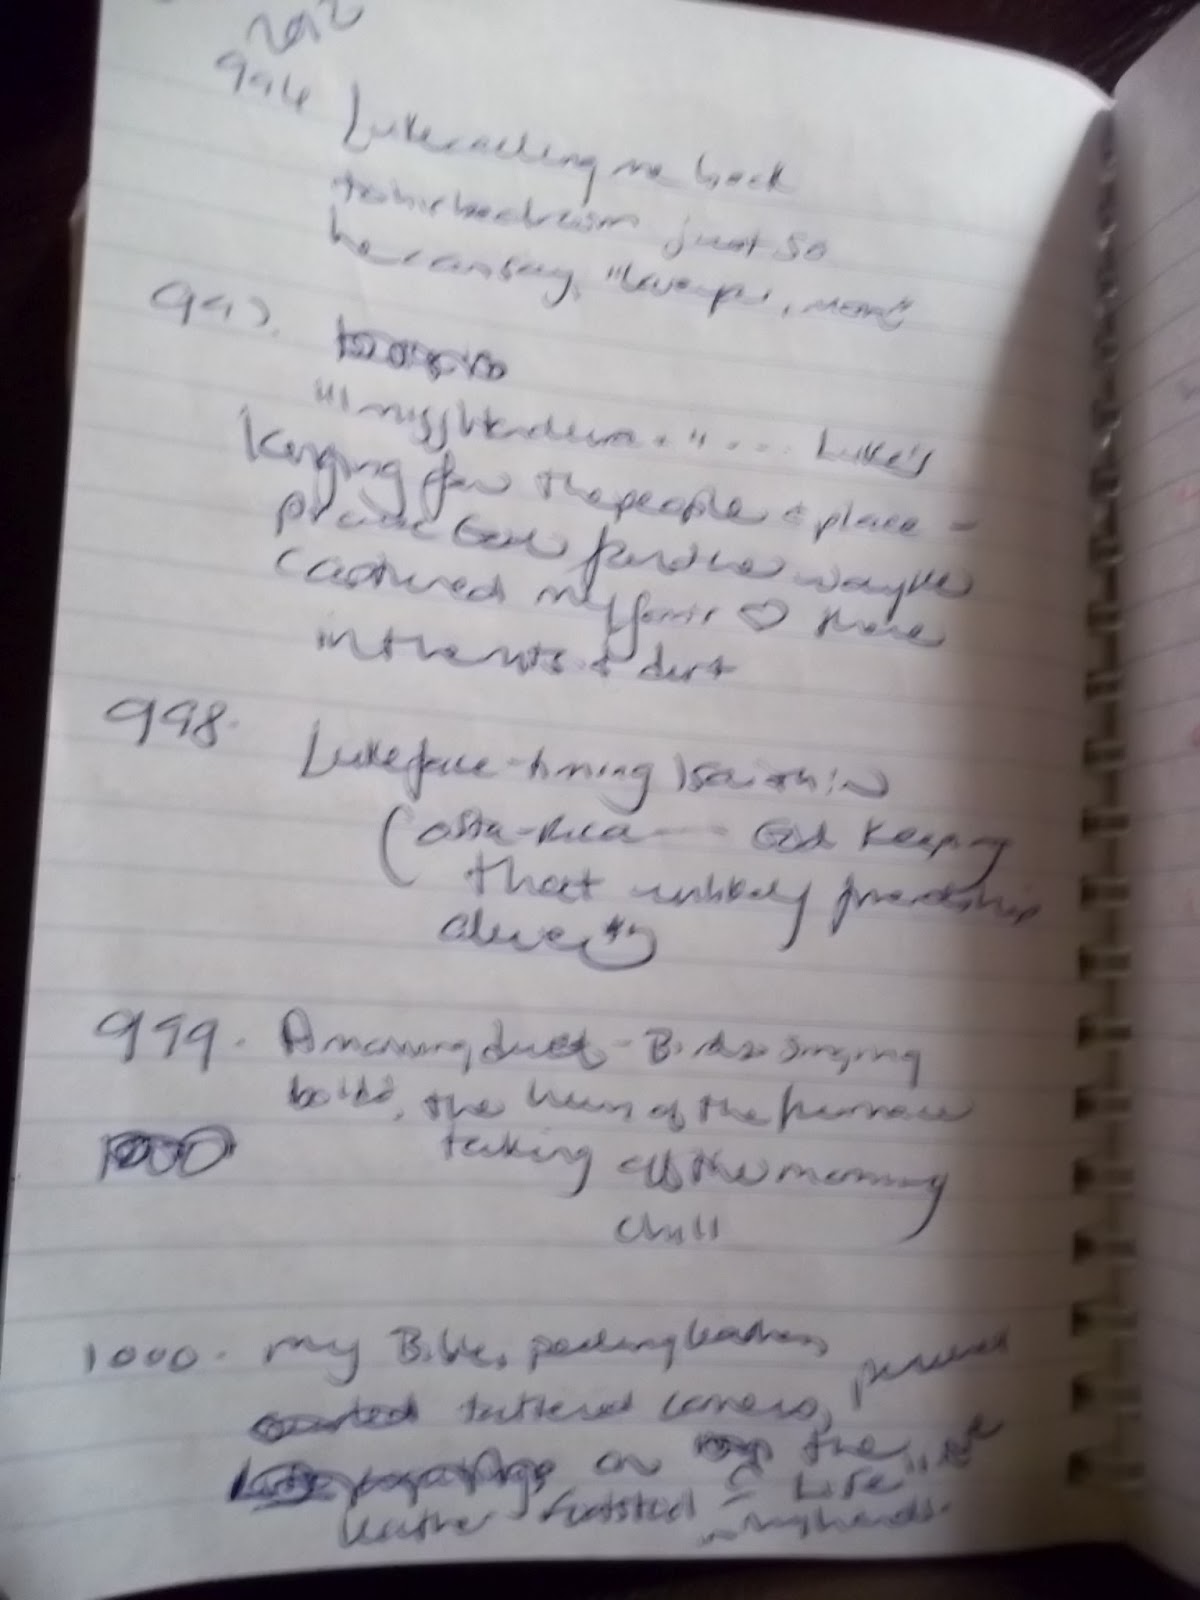 2012
996 Luke calling me back
to his bedroom just so
he can say, "love you, mom"
997.
"I miss Honduras." ... Luke's
longing for the people & place -
praise God for the way He
captured my fam's ♡ there
in the huts & dirt
998. Luke face-timing Isaiah in
Costa-Rica --- God keeping
that unlikely friendship
alive
999. A morning duet - Birds singing
bold, the hum of the furnace
taking off the morning
chill
1000
1000. my Bible, peeling leather,
tattered corners,
on the
leather footstool = Life
in my hands.